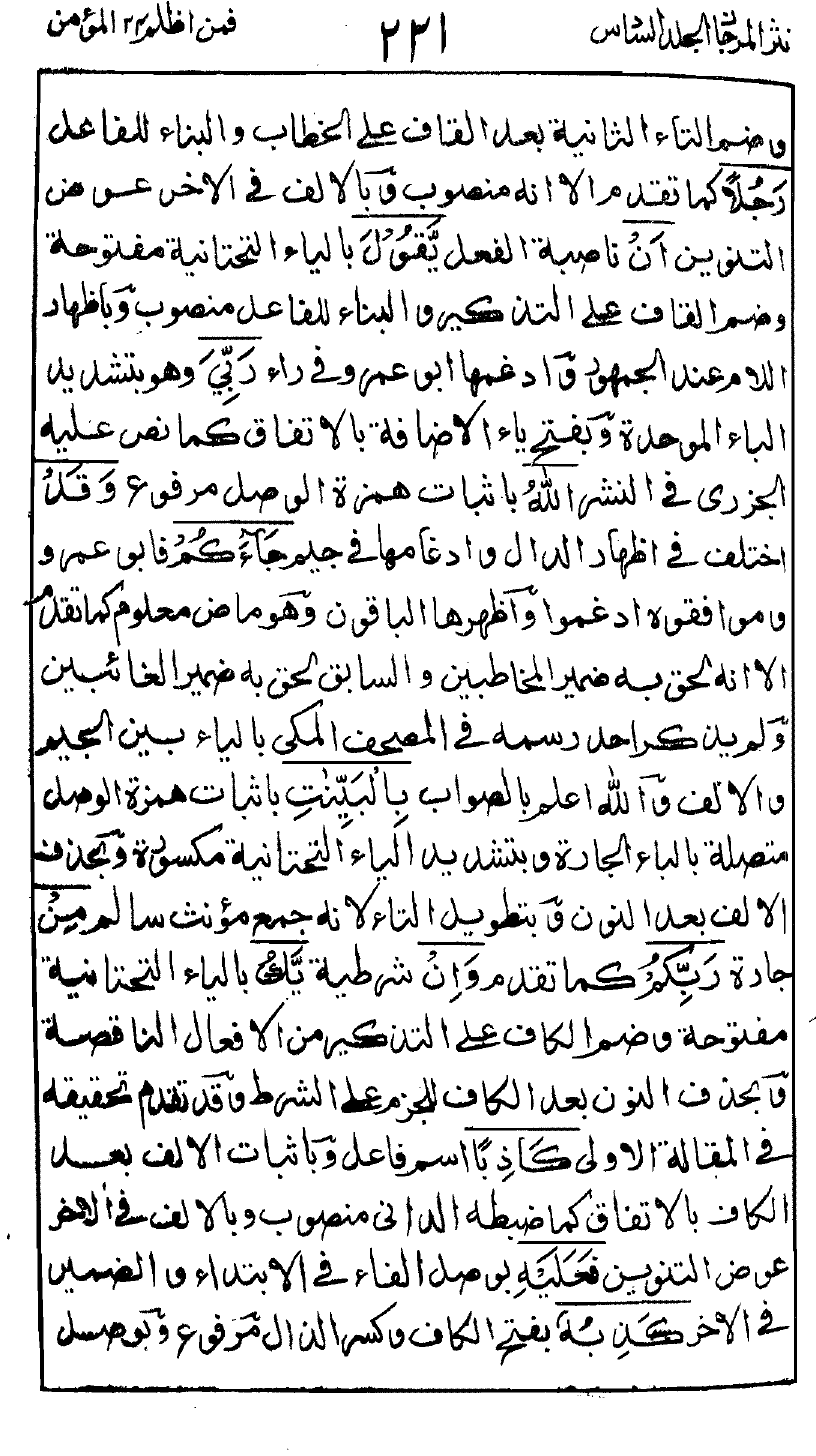 نثر المرجان الجلد السادس ٢٢١ فمن اظلم ٢٤ المؤمن
وضم التاء الثانية بعد القاف على الخطاب والبناء للفاعل
رَجُلًا كما تقدم الا انه منصوب وبالالف في الاخر عوض
التنوين اَنْ ناصبة الفعل يَّقُوْلَ بالياء التحتانية مفتوحة
وضم القاف على التذكير والبناء للفاعل منصوب وباظهار
اللام عند الجمهور وادغمها ابو عمرو في راء رَبِّيَ وهو بتشديد
الباء الموحدة وبفتح ياء الاضافة بالاتفاق كما نص عليه
الجزرى في النشر اللّٰهُ باثبات همزة الوصل مرفوع وَقَدْ
اختلف في اظهار الدال وادغامها في جيم جَآءَكُمْ فابو عمرو
وموافقوه ادغموا واظهرها الباقون وهو ماض معلوم كما تقدم
الا انه الحق به ضمير المخاطبين والسابق الحق به ضمير الغائبين
ولم يذكر احد رسمه في المصحف المكى بالياء بين الجيم
والالف والله اعلم بالصواب بِالْبَيِّنٰتِ باثبات همزة الوصل
متصلة بالباء الجارة وبتشديد الياء التحتانية مكسورة وبحذف
الالف بعد النون وبتطويل التاء لانه جمع مؤنث سالم مِنْ
جارة رَبِّكُمْ كما تقدم وَاِنْ شرطية يَّكُ بالياء التحتانية
مفتوحة وضم الكاف على التذكير من الافعال الناقصة
وبحذف النون بعد الكاف للجزم على الشرط وقد تقدم تحقيقه
في المقالة الاولى كَاذِبًا اسم فاعل وباثبات الالف بعد
الكاف بالاتفاق كما ضبطه الدانى منصوب وبالالف في الاخر
عوض التنوين فَعَلَيْهِ بوصل الفاء في الابتداء والضمير
في الاخر كَذِبُهٗ بفتح الكاف وكسر الذال مرفوع وبوصل